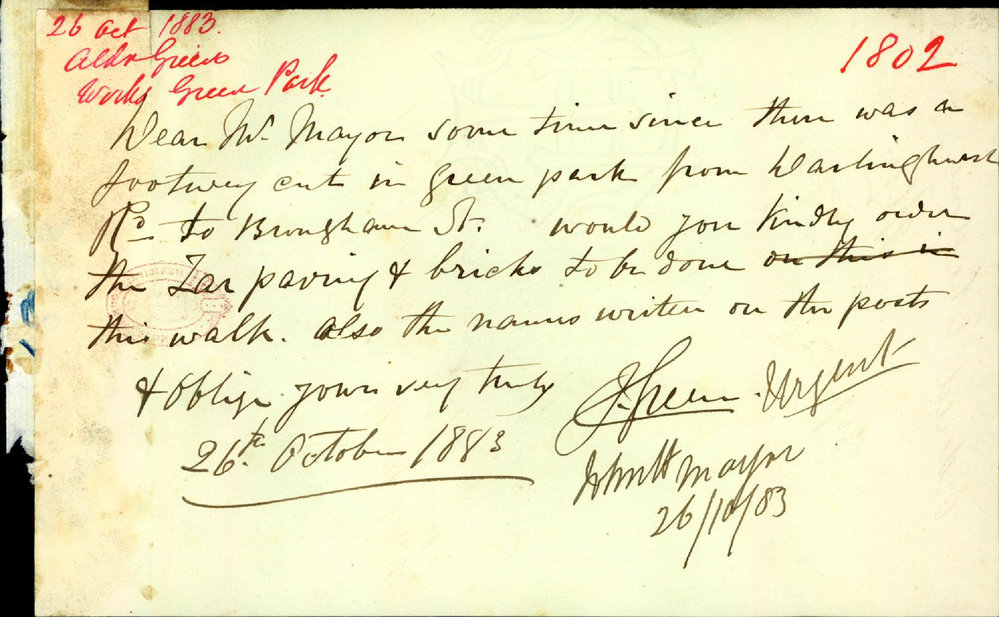 26 Oct 1883.
Aldn Green
Works Green Park
1802
Dear Mr. Mayor some time since there was a
footway cut in Green park from Darlinghurst
Rd to Brougham St. would you kindly order
the Tar paving & bricks to be done on this in
this walk. also the names writen on the posts
& oblige yours very truly
J. Green. Urgent
26th October 1883
Mayor
26/10/83